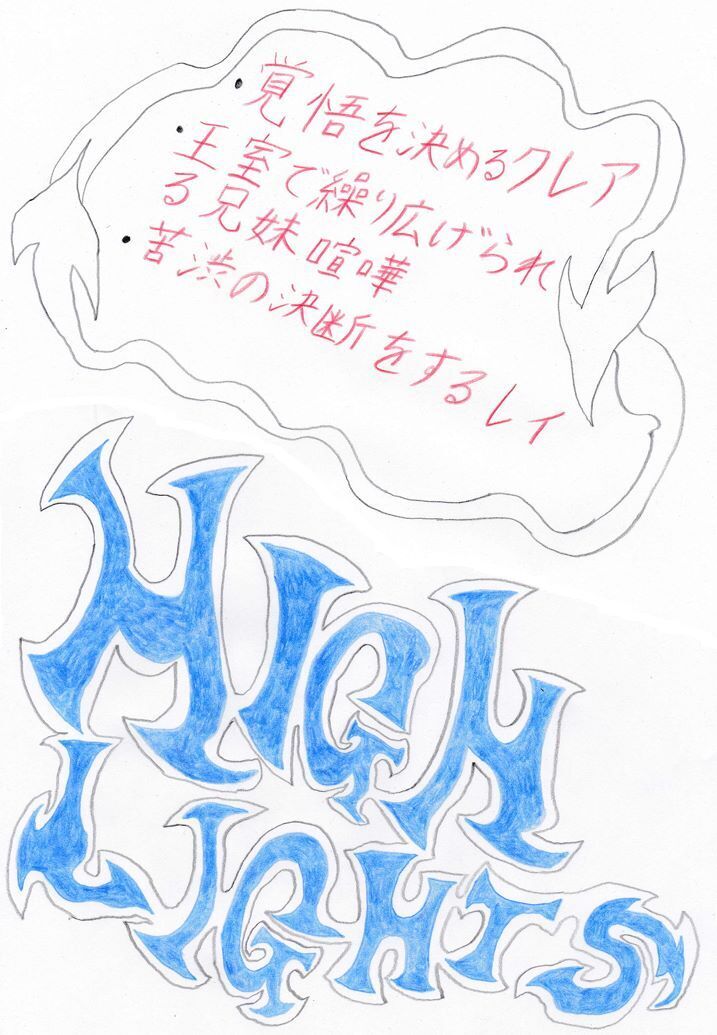 ・覚悟を決めるクレア
・王室で繰り広げられ
る兄妹喧嘩
・苦渋の決断をするレイ
HIGH
LIGHTS